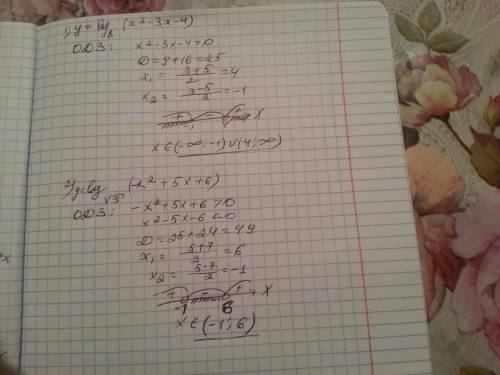 1) y = log₈ (x²-3x-4)
ОДЗ: x²-3x-4>0
D=9+16=25
x₁ = (3+5)/2 = 4
x₂ = (3-5)/2 = -1
+ - + x
-1 4
x∈(-∞;-1)∪(4;∞)
2) y=log√3 (-x²+5x+6)
ОДЗ: -x²+5x+6>0
x²-5x-6<0
D=25+24=49
x₁ = (5+7)/2 = 6
x₂ = (5-7)/2 = -1
+ - + x
-1 6
x∈(-1;6)